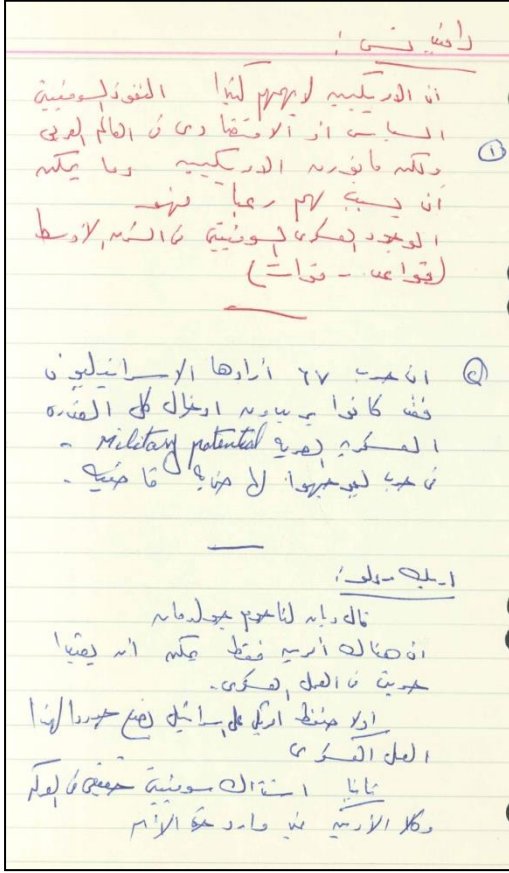 أن الأمريكيين لا يهمهم كثيرا النفوذ السوفييتي
السياسي أو الاقتصادي في العالم العربي
①
ولكن ما الأمريكيين وما يمكن
أن يسبب لهم رعبا فهو
الوجود العسكري السوفييتي في الشرق الأوسط
(قواعد - قوات)
② ان حرب ٦٧ أرادها الإسرائيليون
فقد كانوا يريدون ادخال كل القدرة
العسكرية المصرية Military potential -
في حرب ليوجهوا لها ضربة قاضية -
قال ديان لناحوم جولدمان
ان هناك أمرين فقط يمكن أن
في العمل العسكري -
أولا ضغط أمريكي على إسرائيل يضع حدودا لهذا
العمل العسكري
ثانيا اشتراك سوفييتي حقيقي في المعركة
وكلا الأمرين غير وارد حتى الآن